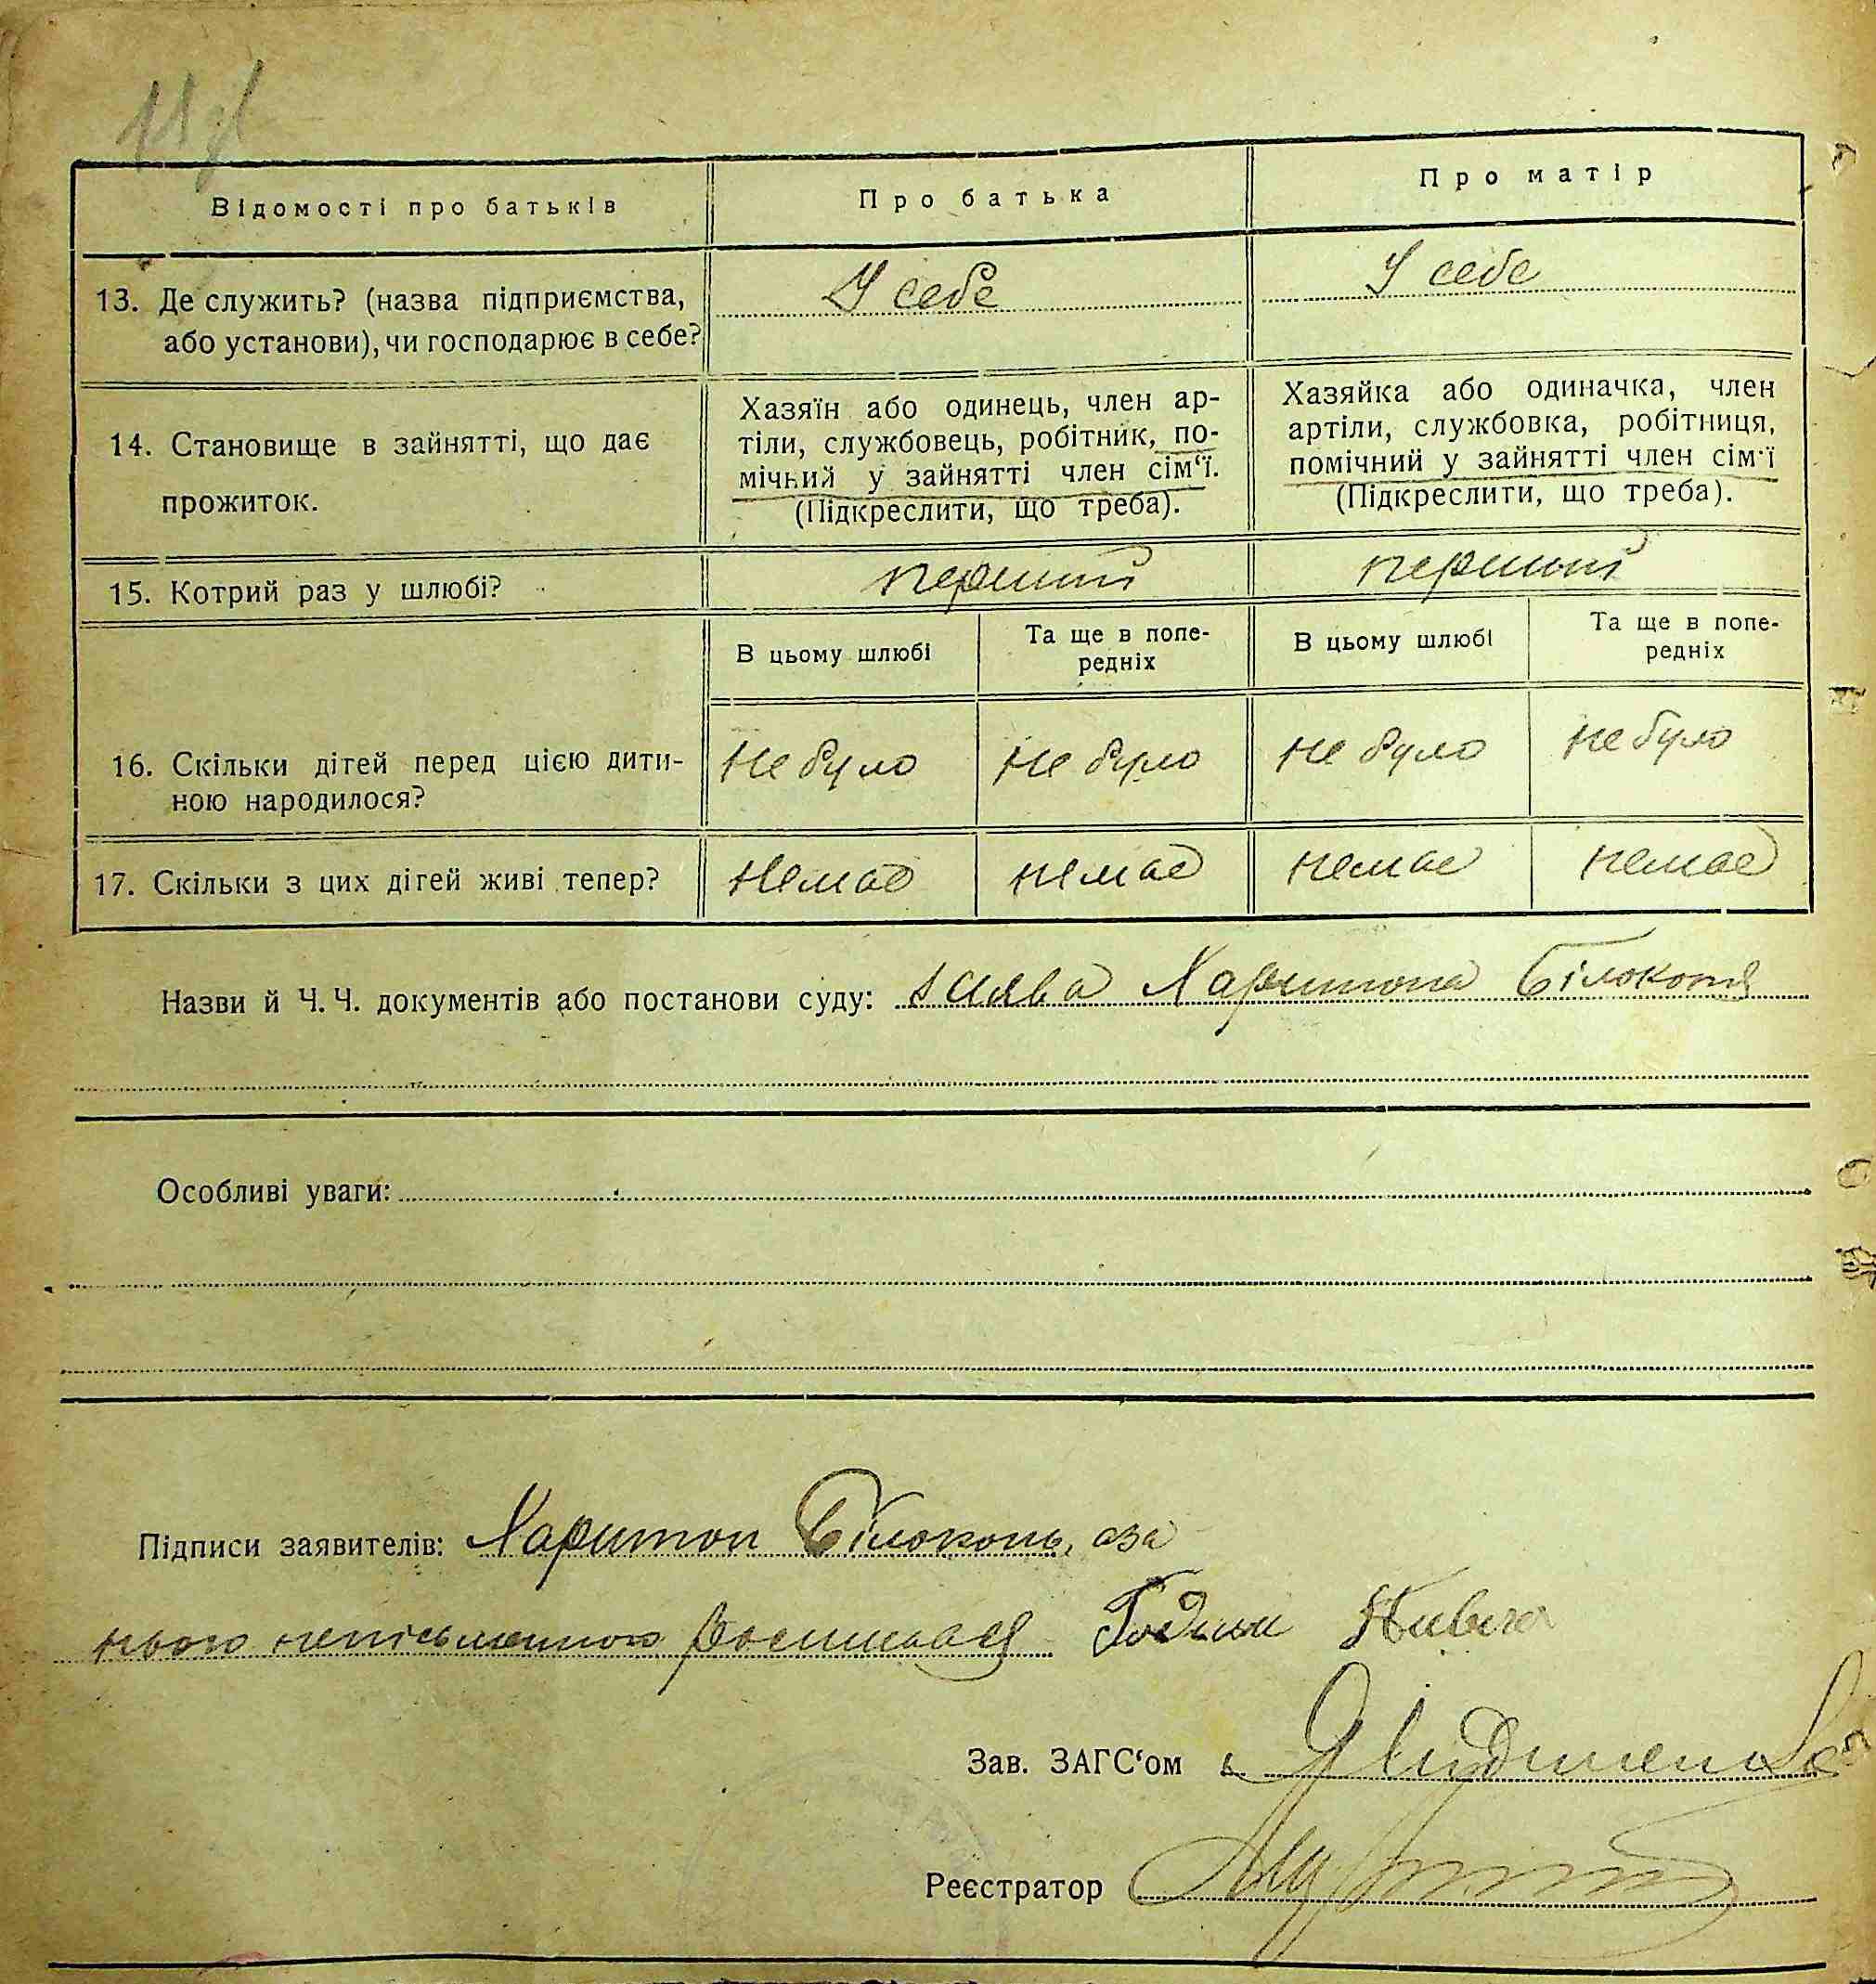 Відомості про батьків
Про батька
Про матір
13. Де служить? (назва підприємства,
або установи), чи господарює в себе?
У себе
У себе
14. Становище в зайнятті, що дає
прожиток.
Хазяїн або одинець, член ар-
тіли, службовець, робітник, по-
мічний у зайнятті член сім‘ї.
(Підкреслити, що треба).
Хазяйка або одиначка, член
артіли, службовка, робітниця,
помічний у зайнятті член сім‘ї
(Підкреслити, що треба).
15. Котрий раз у шлюбі?
перший
перший
В цьому шлюбі
Та ще в попе-
редніх
В цьому шлюбі
Та ще в попе-
редніх
16. Скільки дітей перед цією дити-
ною народилося?
не було
не було
не було
не було
17. Скільки з цих дітей живі тепер?
немає
немає
немає
немає
Назви й Ч. Ч. документів або постанови суду: заява Харитона Білоконя
Особливі уваги:
Підписи заявителів: Харитон Білоконь, а за
нього неписьменного росписався
Зав. ЗАГС‘ом
Реєстратор